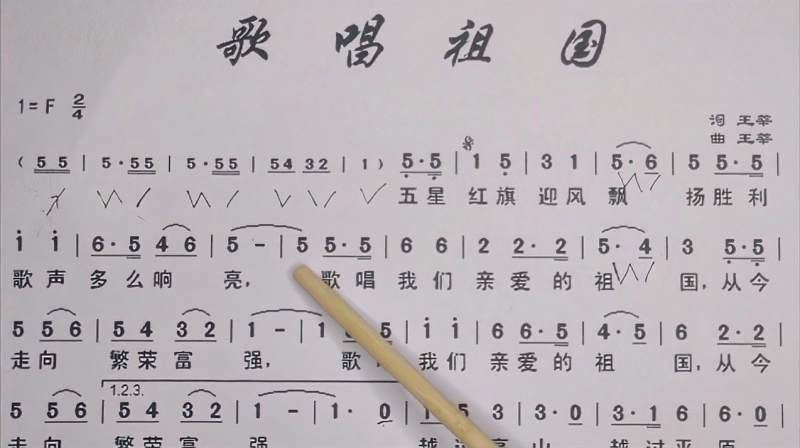 歌唱祖国
1=F 2/4
词 王莘
曲 王莘
( 5 5 | 5· 55 | 5· 55 | 54 32 | 1 ) 5·5 | 1 5 | 3 1 | 5· 6 | 5 5·5 |
五星 红旗 迎风 飘 扬胜利
i i | 6·5 46 | 5 - | 5 5·5 | 6 6 | 2 2·2 | 5· 4 | 3 5·5 |
歌声 多么响 亮, 歌唱 我们 亲爱的 祖 国,从今
5 56 | 54 32 | 1 - | 1 5 | i i | 6·5 | 4 | 6 2·2 |
走向 繁荣富 强, 歌 我们 亲爱的 祖 国,从今
1.2.3.
5 56 | 54 32 | 1 - | 1· 0 | 5 | 3 | 3·1 6 |
走向 繁荣富 强